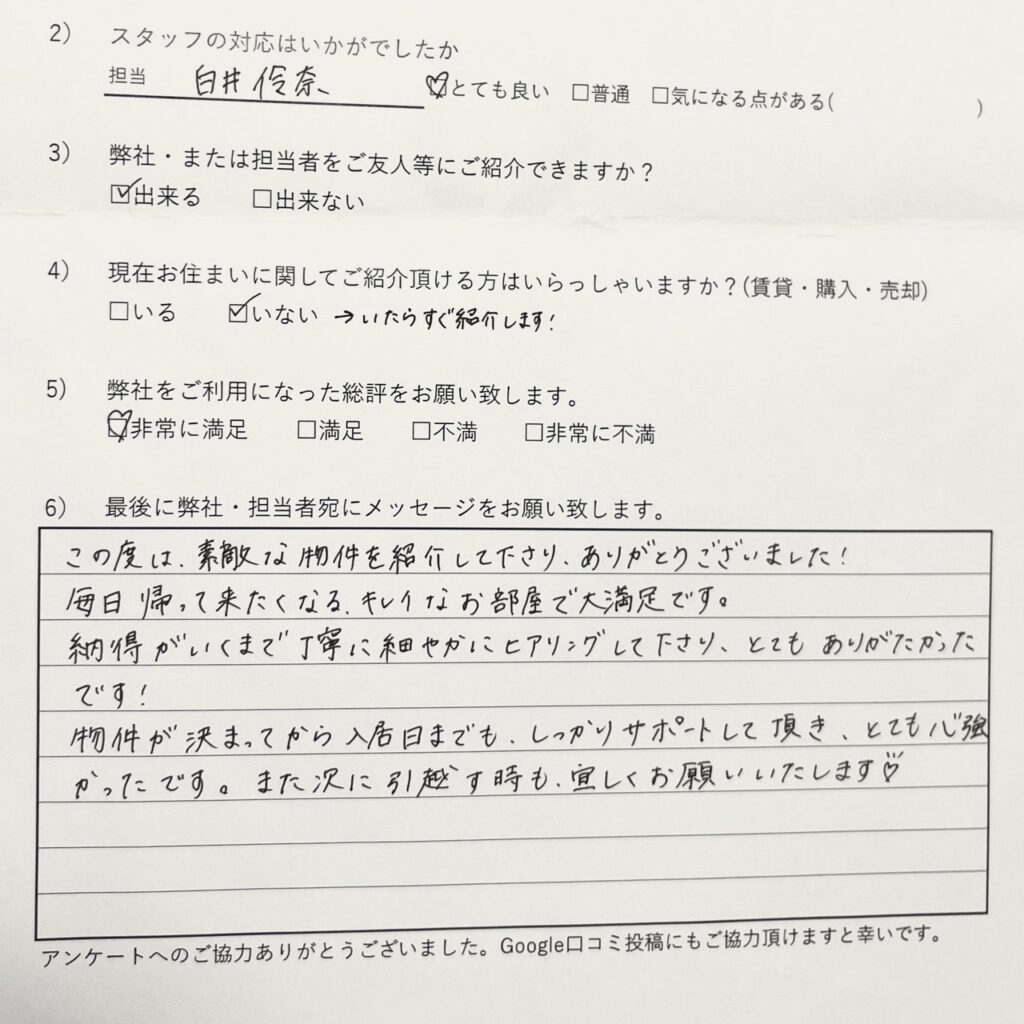 2) スタッフの対応はいかがでしたか
担当 白井伶奈 ☑とても良い □普通 □気になる点がある( )
3) 弊社・または担当者をご友人等にご紹介できますか?
☑出来る □出来ない
4) 現在お住まいに関してご紹介頂ける方はいらっしゃいますか?(賃貸・購入・売却)
□いる ☑いない →いたらすぐ紹介します!
5) 弊社をご利用になった総評をお願い致します。
☑非常に満足 □満足 □不満 □非常に不満
6) 最後に弊社・担当者宛にメッセージをお願い致します。
この度は、素敵な物件を紹介して下さり、ありがとうございました!
毎日帰って来たくなる、キレイなお部屋で大満足です。
納得がいくまで丁寧に細やかにヒアリングして下さり、とてもありがたかった
です!
物件が決まってから入居日までも、しっかりサポートして頂き、とても心強
かったです。また次に引越す時も、宜しくお願いいたします♡
アンケートへのご協力ありがとうございました。Google口コミ投稿にもご協力頂けますと幸いです。